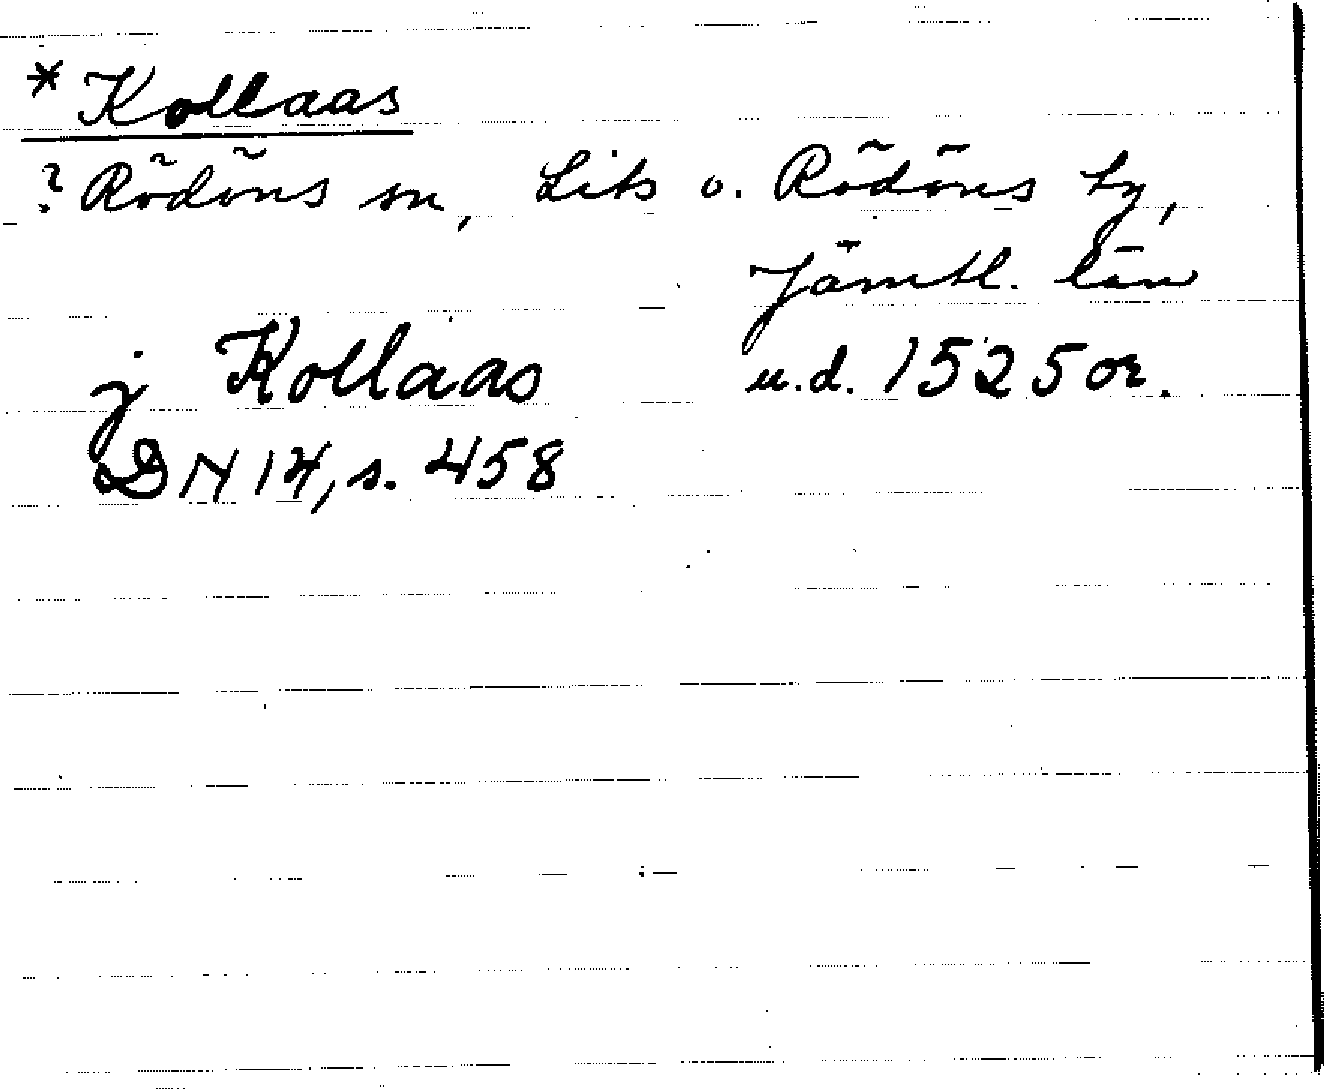 * Kollaas
? Rödöns sn, Lits o. Rödöns tg,
Jämtl. län
j Kollaas u.d. 1525 or.
DN 14, s. 458